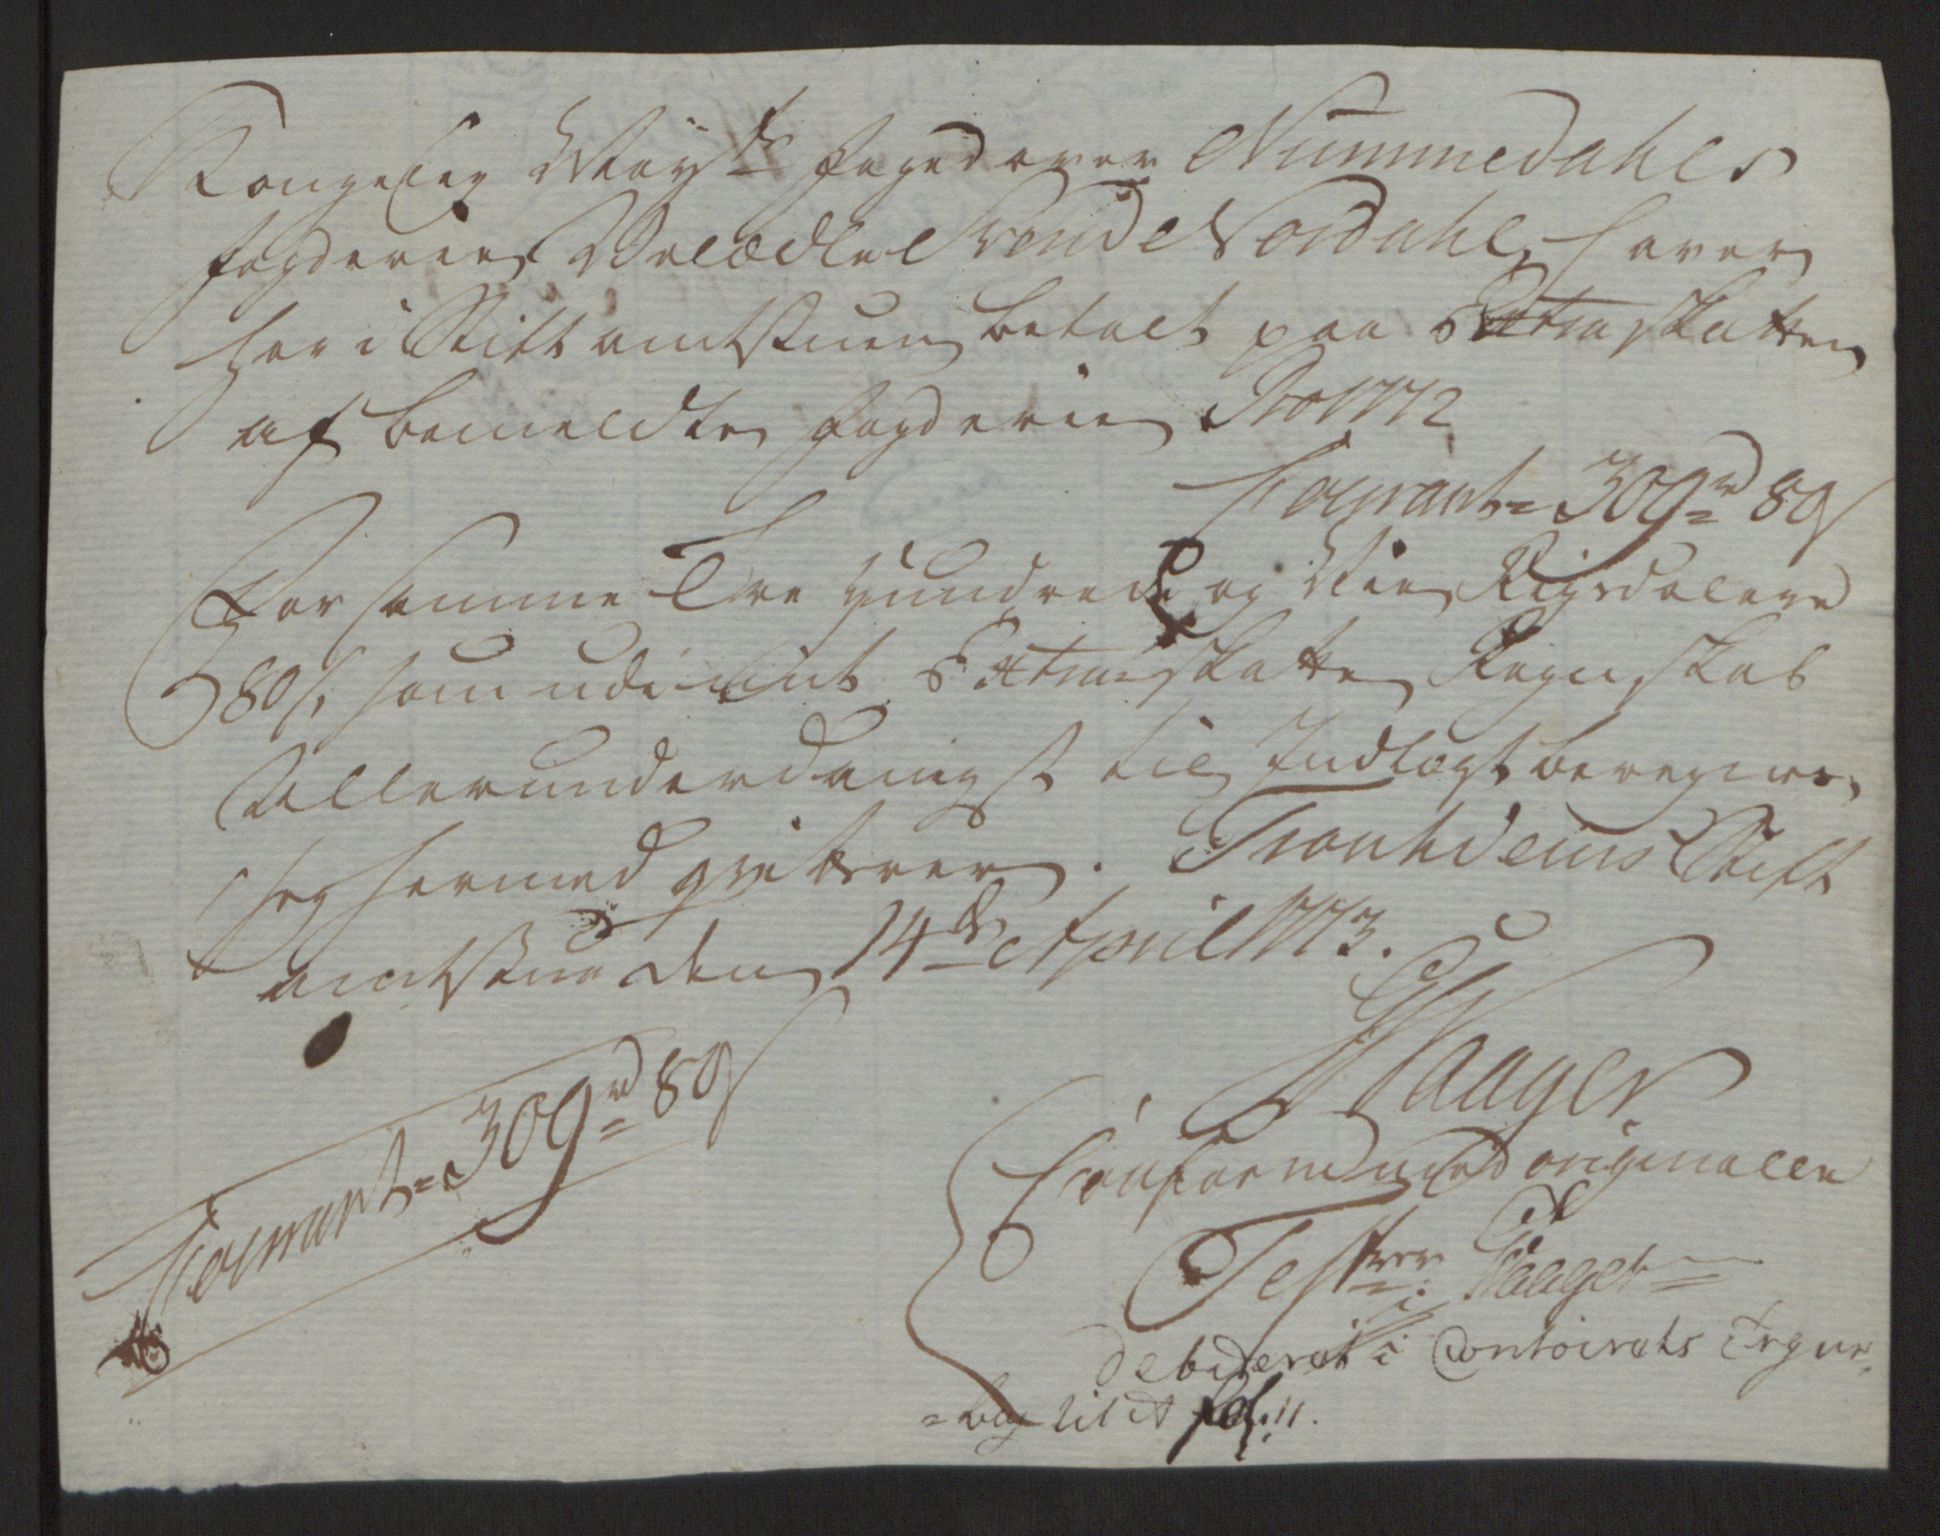 Kongelig Mayts Foged over Nummedahls
Fogderie Velædle Svend Nordahl, haver
her i Stiftamtstuen betalt paa Extra skatten
af bemeldte Fogderie Pro 1772
Courant = 309 rd 80 s
For samme Tre Hundrede og Nie Rigsdalere
80 s, som udi mit Extraskatte Regnskab
Allerunderdanigst til Indtægt beregnes,
jeg hermed qvitterer. Tronhdeims Stift
amtstue den 14de April 1773.
Haager
Courant = 309 rd 80 s
Conform med originalen
Test: Haager
debiteret i Contoirets
bog litr A fol: 11.